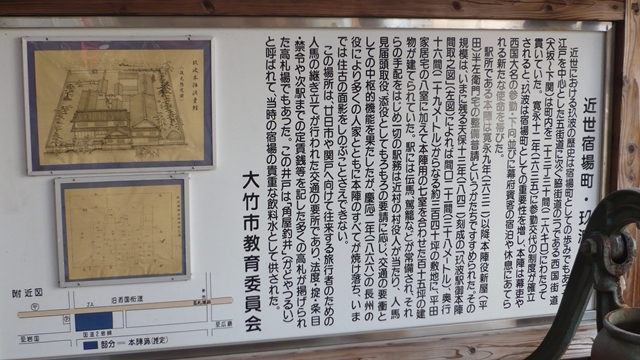 近世宿場町・玖
近世における玖波の歴史は宿場町としての歩みでもあ
江戸を中心とした五街道に次ぐ脇街道の一つである西国街道
(大坂~下関)は町内を二十三丁三十間(二・六キロ)にわたって
貫いていた。寛永十二年(一六三五)に参勤交代の制度が確立
されると、玖波は宿場町としての重要性を増し、本陣は幕府や
西国大名の参勤・下向並びに幕府賓客の宿泊や休憩にあてら
れる新たな使命を帯びた。
駅所である本陣は寛永九年(一六三二)以降本陣役新屋(平
田)半左衛門宅の整備普請というかたちですすめられた。その
規模は、いまに残る天保十二年(一八四一)製成の「玖波駅御本陣
間取之図」(左図)によれば間口二十間(三十八メートル)、奥行
十六間(二十九メートル)からなる約三百四十坪の敷地に、平田
家居宅の八室に加えて本陣用の七室を合わせた百十五坪の建
物が建てられていた。駅には伝馬、駕籠などが常備され、それ
らの手配をはじめ一切の駅務は近村の村役人が当たり、人馬
見届頭取役、添役としてもろもろの要請に応じ、交通の要衝と
しての中枢的機能を果たしたが、慶応二年(一八六六)の長州の
役により多くの人家とともに本陣のすべてが焼け落ち、いま
では往古の面影をしのぶことさえできない。
この場所は、廿日市や関戸へ向けて往来する旅行者のための
人馬の継ぎ立てが行われた交通の要所であり、法度・掟・条目
・禁令や次駅までの荷駄賃銭等を記した多くの高札が掲げられ
た高札場でもあった。この井戸は、「角屋釣井」(かどやつるい)
と呼ばれて、当時の宿場の貴重な飲料水として供された。
大竹市教育委員会
附近図
旧西国街道
国道2号線
至岩国
至広島
部分‥‥本陣跡(推定)